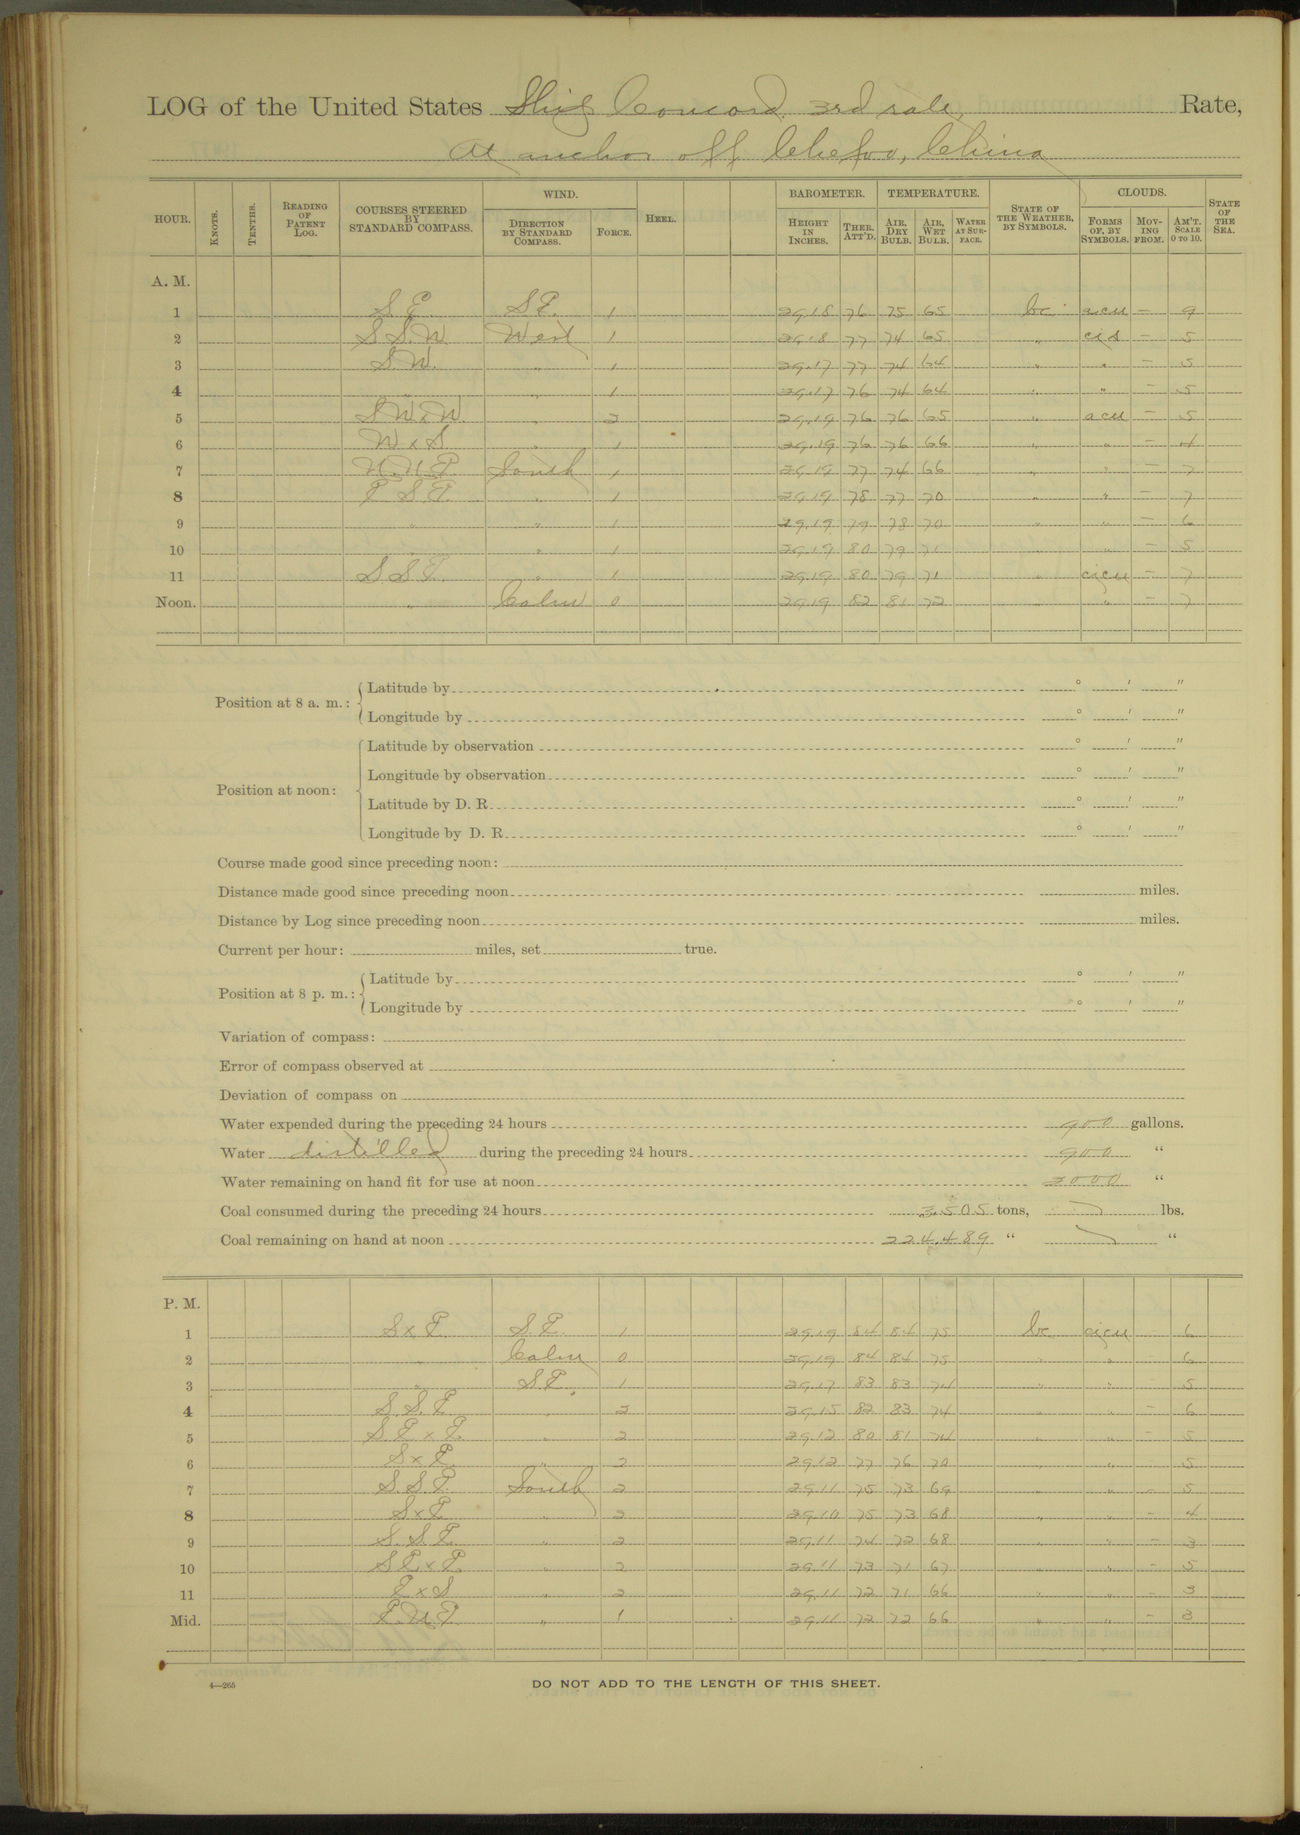 LOG of the United States Ship Concord, 3rd rate, Rate,
At anchor off Chefoo, China
HOUR. KNOTS. TENTHS. READING OF PATENT LOG. COURSES STEERED BY STANDARD COMPASS. WIND. DIRECTION BY STANDARD COMPASS. FORCE. HEEL. BAROMETER. HEIGHT IN INCHES. THER. ATT'D. TEMPERATURE. AIR, DRY BULB. AIR, WET BULB. WATER AT SURFACE. STATE OF THE WEATHER, BY SYMBOLS. CLOUDS. FORMS OF, BY SYMBOLS. MOVING FROM. AM'T. SCALE 0 TO 10. STATE OF THE SEA.
A. M.
1 S.E. S.E. 1 29.18 76 75 65 bc acu — 9
2 S.S.W. West 1 29.18 77 74 65 " cis — 5
3 S.W. " 1 29.17 77 74 64 " " — 5
4 " " 1 29.17 76 74 64 " " — 5
5 SWxW " 2 29.19 76 76 65 " acu — 5
6 WxS " 1 29.19 76 76 66 " " — 4
7 N.N.E. South 1 29.19 77 74 66 " — 7
8 E.S.E. " 1 29.19 78 77 70 " " — 7
9 " " 1 29.19 79 78 70 " " — 6
10 " " 1 29.19 80 79 71 " " — 5
11 S.S.E. " 1 29.19 80 79 71 " cicu — 7
Noon. " Calm 0 29.19 82 81 72 " " — 7
Position at 8 a. m.: Latitude by ° ′ ″
Longitude by ° ′ ″
Position at noon: Latitude by observation ° ′ ″
Longitude by observation ° ′ ″
Latitude by D. R. ° ′ ″
Longitude by D. R. ° ′ ″
Course made good since preceding noon:
Distance made good since preceding noon miles.
Distance by Log since preceding noon miles.
Current per hour: miles, set true.
Position at 8 p. m.: Latitude by ° ′ ″
Longitude by ° ′ ″
Variation of compass:
Error of compass observed at
Deviation of compass on
Water expended during the preceding 24 hours 900 gallons.
Water distilled during the preceding 24 hours 900 "
Water remaining on hand fit for use at noon 3000 "
Coal consumed during the preceding 24 hours 3.505 tons, lbs.
Coal remaining on hand at noon 224.489 " "
P. M.
1 SxE S.E. 1 29.19 84 84 75 bc cicu 6
2 " Calm 0 29.19 84 84 75 " " 6
3 " S.E. 1 29.17 83 83 74 " " 5
4 S.S.E. " 2 29.15 82 83 74 " " — 6
5 SExE " 2 29.12 80 81 74 " " — 5
6 SxE " 2 29.12 77 76 70 " " — 5
7 S.S.E. South 2 29.11 75 73 69 " " — 5
8 SxE " 2 29.10 75 73 68 " " — 4
9 S.S.E. " 2 29.11 74 72 68 " " — 3
10 SExE " 2 29.11 73 71 67 " " — 5
11 ExS " 2 29.11 72 71 66 " " — 3
Mid. E.N.E. " 1 29.11 72 72 66 " " — 3
4—265
DO NOT ADD TO THE LENGTH OF THIS SHEET.